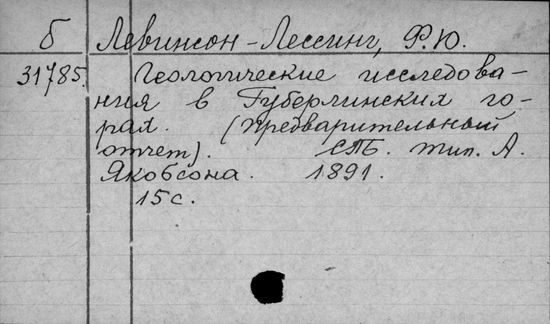 б Левинсон-Лессинг, Ф.Ю.
31785. Геологические исследова-
ния в Губерлинских го-
рах. (Предварительный
отчет). СПБ. тип. А.
Якобсона. 1891.
15 с.